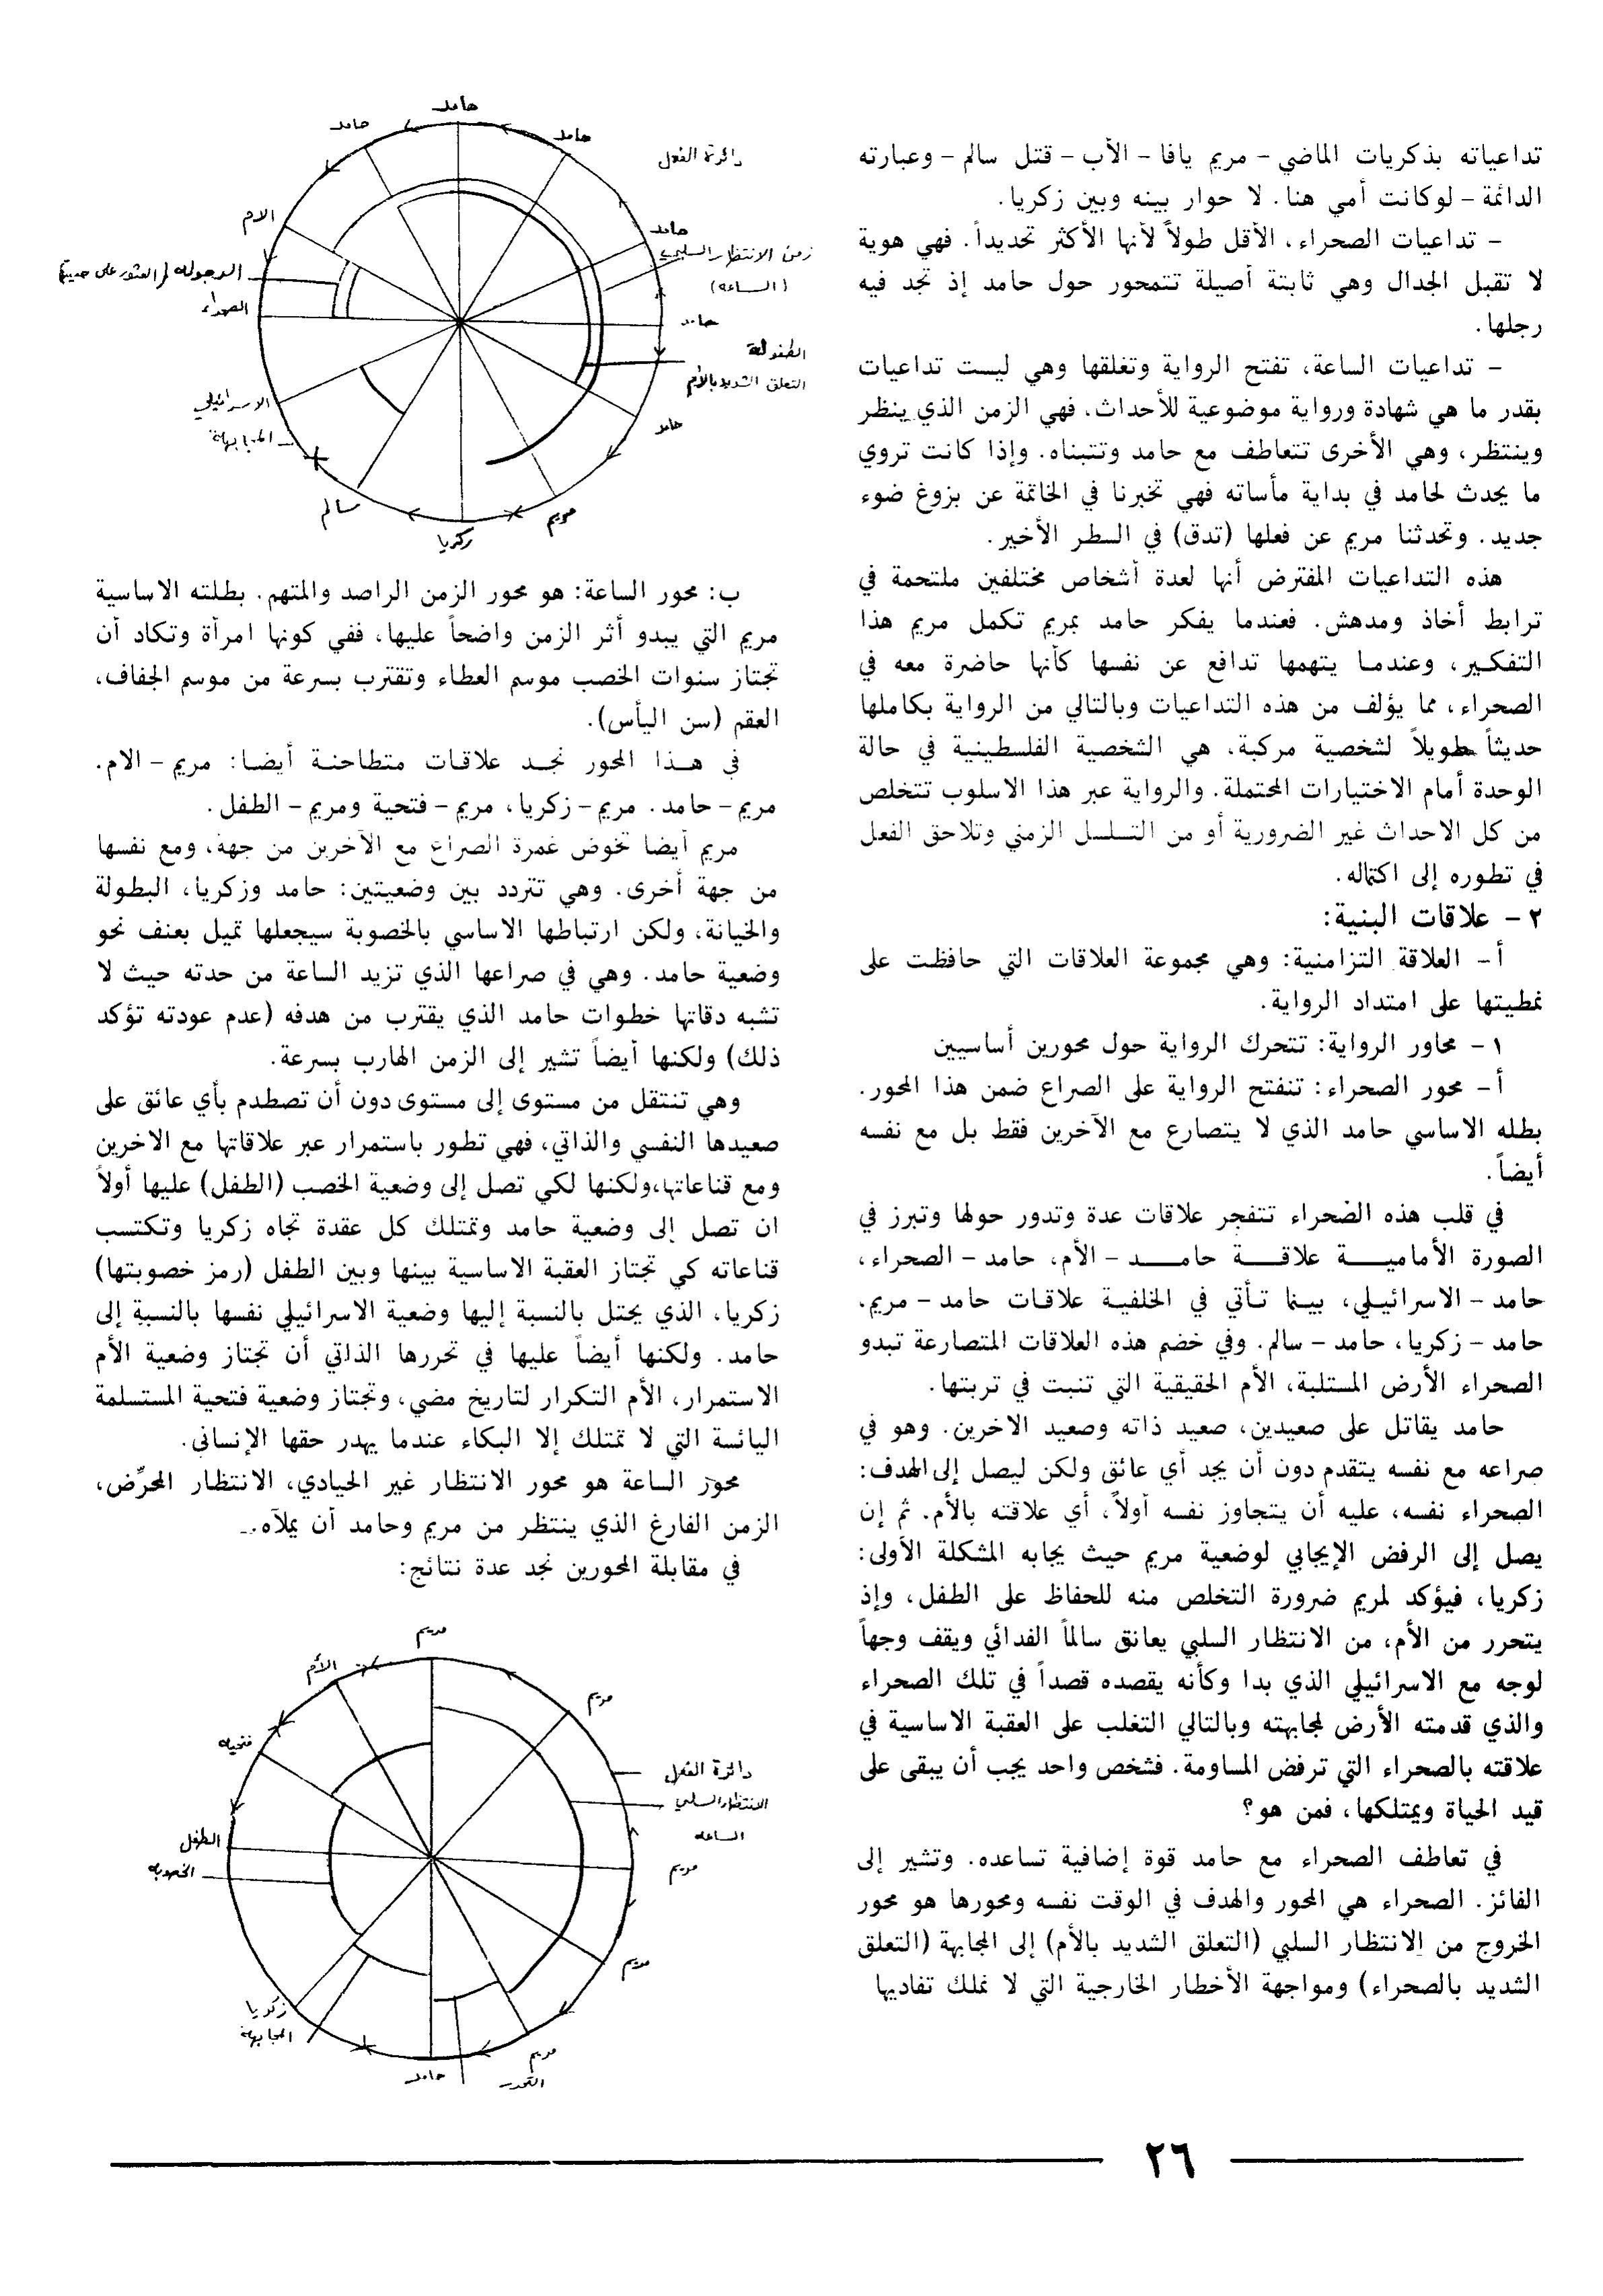 تداعياته بذكريات الماضي - مريم يافا - الأب - قتل سالم - وعبارته
الدائمة - لوكانت أمي هنا. لا حوار بينه وبين زكريا.
- تداعيات الصحراء، الأقل طولاً لأنها الأكثر تحديداً. فهي هوية
لا تقبل الجدال وهي ثابتة أصيلة تتمحور حول حامد إذ تجد فيه
رجلها.
- تداعيات الساعة، تفتح الرواية وتغلقها وهي ليست تداعيات
بقدر ما هي شهادة ورواية موضوعية للأحداث، فهي الزمن الذي ينظر
وينتظر، وهي الأخرى تتعاطف مع حامد وتتبناه. وإذا كانت تروي
ما يحدث لحامد في بداية مأساته فهي تخبرنا في الخاتمة عن بزوغ ضوء
جديد. وتحدثنا مريم عن فعلها (تدق) في السطر الأخير.
هذه التداعيات المفترض أنها لعدة أشخاص مختلفين ملتحمة في
ترابط أخاذ ومدهش. فعندما يفكر حامد بمريم تكمل مريم هذا
التفكير، وعندما يتهمها تدافع عن نفسها كأنها حاضرة معه في
الصحراء، مما يؤلف من هذه التداعيات وبالتالي من الرواية بكاملها
حديثاً طويلاً لشخصية مركبة، هي الشخصية الفلسطينية في حالة
الوحدة أمام الاختيارات المحتملة. والرواية عبر هذا الاسلوب تتخلص
من كل الاحداث غير الضرورية أو من التسلسل الزمني وتلاحق الفعل
في تطوره إلى اكتماله.
٢ - علاقات البنية:
أ - العلاقة التزامنية: وهي مجموعة العلاقات التي حافظت على
نمطيتها على امتداد الرواية.
١ - محاور الرواية: تتحرك الرواية حول محورين أساسيين
أ - محور الصحراء: تنفتح الرواية على الصراع ضمن هذا المحور.
بطله الاساسي حامد الذي لا يتصارع مع الآخرين فقط بل مع نفسه
أيضاً.
في قلب هذه الصحراء تتفجر علاقات عدة وتدور حولها وتبرز في
الصورة الأمامية علاقة حامد - الأم، حامد - الصحراء،
حامد - الاسرائيلي، بينما تأتي في الخلفية علاقات حامد - مريم.
حامد - زكريا، حامد - سالم. وفي خضم هذه العلاقات المتصارعة تبدو
الصحراء الأرض المستلبة، الأم الحقيقية التي تنبت في تربتها.
حامد يقاتل على صعيدين، صعيد ذاته وصعيد الاخرين. وهو في
صراعه مع نفسه يتقدم دون أن يجد أي عائق ولكن ليصل إلى الهدف:
الصحراء نفسه، عليه أن يتجاوز نفسه أولاً، أي علاقته بالأم. ثم إن
يصل إلى الرفض الإيجابي لوضعية مريم حيث يجابه المشكلة الأولى:
زكريا، فيؤكد لمريم ضرورة التخلص منه للحفاظ على الطفل، وإذ
يتحرر من الأم، من الانتظار السلبي يعانق سالماً الفدائي ويقف وجهاً
لوجه مع الاسرائيلي الذي بدا وكأنه يقصده قصداً في تلك الصحراء
والذي قدمته الأرض لمجابهته وبالتالي التغلب على العقبة الاساسية في
علاقته بالصحراء التي ترفض المساومة. فشخص واحد يجب أن يبقى على
قيد الحياة ويمتلكها، فمن هو؟
في تعاطف الصحراء مع حامد قوة إضافية تساعده. وتشير إلى
الفائز. الصحراء هي المحور والهدف في الوقت نفسه ومحورها هو محور
الخروج من الانتظار السلبي (التعلق الشديد بالأم) إلى المجابهة (التعلق
الشديد بالصحراء) ومواجهة الأخطار الخارجية التي لا نملك تفاديها
حامد
حامد
حامد
دائرة الفعل
الام
حامد
زمن الانتظار السلبي
(الساعة)
الرجولة (العثور على
الصحراء
حامد
الطفولة
التعلق الشديد بالأم
الاسرائيلي
المجابهة
حامد
سالم
مريم
زكريا
ب: محور الساعة: هو محور الزمن الراصد والمتهم. بطلته الاساسية
مريم التي يبدو أثر الزمن واضحاً عليها، ففي كونها امرأة وتكاد أن
تجتاز سنوات الخصب موسم العطاء وتقترب بسرعة من موسم الجفاف،
العقم (سن اليأس).
في هذا المحور نجد علاقات متطاحنة أيضا: مريم - الام.
مريم - حامد. مريم - زكريا، مريم - فتحية ومريم - الطفل.
مريم أيضا تخوض غمرة الصراع مع الآخرين من جهة، ومع نفسها
من جهة أخرى. وهي تتردد بين وضعيتين: حامد وزكريا، البطولة
والخيانة، ولكن ارتباطها الاساسي بالخصوبة سيجعلها تميل بعنف نحو
وضعية حامد. وهي في صراعها الذي تزيد الساعة من حدته حيث لا
تشبه دقاتها خطوات حامد الذي يقترب من هدفه (عدم عودته تؤكد
ذلك) ولكنها أيضاً تشير إلى الزمن الهارب بسرعة.
وهي تنتقل من مستوى إلى مستوى دون أن تصطدم بأي عائق على
صعيدها النفسي والذاتي، فهي تطور باستمرار عبر علاقاتها مع الاخرين
ومع قناعاتها، ولكنها لكي تصل إلى وضعية الخصب (الطفل) عليها أولاً
ان تصل إلى وضعية حامد وتمتلك كل عقدة تجاه زكريا وتكتسب
قناعاته كي تجتاز العقبة الاساسية بينها وبين الطفل (رمز خصوبتها)
زكريا، الذي يحتل بالنسبة إليها وضعية الاسرائيلي نفسها بالنسبة إلى
حامد. ولكنها أيضاً عليها في تحررها الذاتي أن تجتاز وضعية الأم
الاستمرار، الأم التكرار لتاريخ مضي، وتجتاز وضعية فتحية المستسلمة
اليائسة التي لا تمتلك إلا البكاء عندما يهدر حقها الإنساني.
محور الساعة هو محور الانتظار غير الحيادي، الانتظار المحرِّض،
الزمن الفارغ الذي ينتظر من مريم وحامد أن يملآه.
في مقابلة المحورين نجد عدة نتائج:
مريم
الأم
مريم
فتحية
دائرة الفعل
الانتظار السلبي
الساعة
الطفل
الخصوبة
مريم
مريم
زكريا
المجابهة
مريم
حامد
٢٦